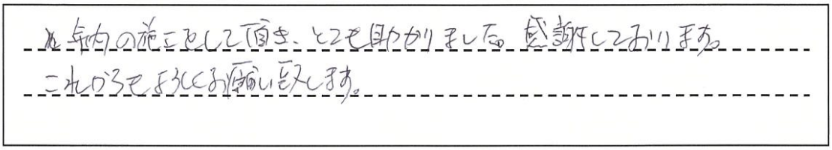 年内の施工をして頂き、とても助かりました。感謝しております。
これからもよろしくお願い致します。